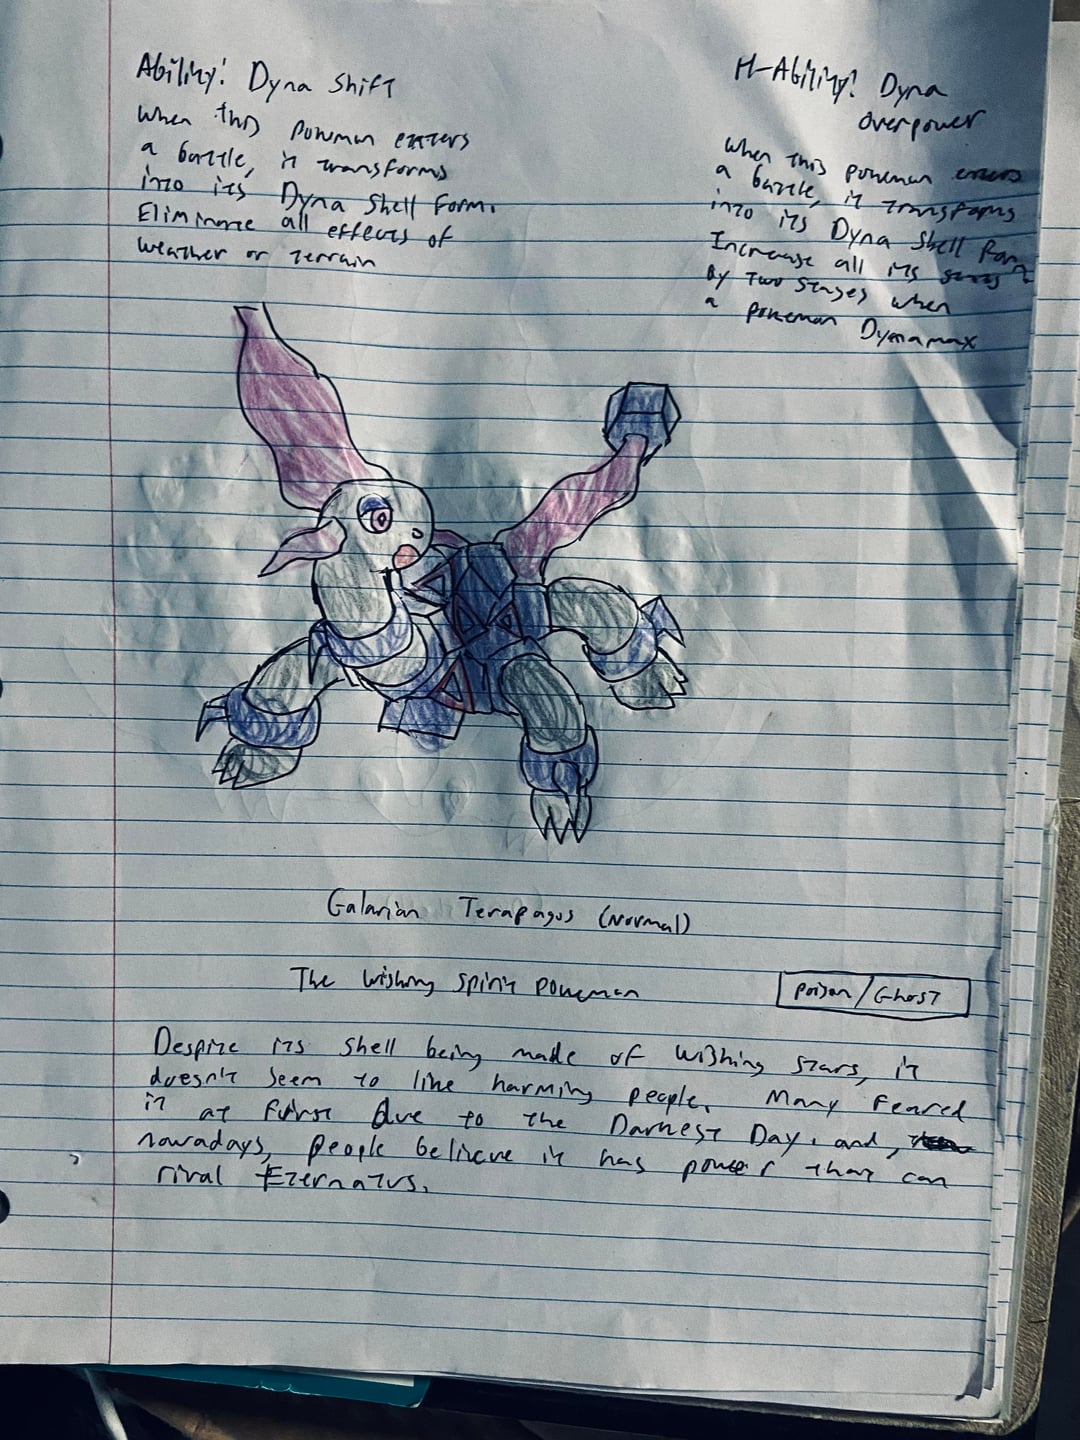 Ability: Dyna Shift
When this pokemon enters
a battle, it transforms
into its Dyna Shell Form.
Eliminate all effects of
weather or terrain
H-Ability: Dyna
Overpower
When this pokemon enters
a battle, it transforms
into its Dyna Shell Form
Increase all its stats
By two stages when
a pokemon Dynamax
Galarian Terapagos (Normal)
The Wishing Spirit Pokemon
Poison/Ghost
Despite its shell being made of wishing stars, it
doesn't seem to like harming people. Many feared
it at furst due to the Darkest Day. and,
nowadays, people believe it has power that can
rival Eternatus.